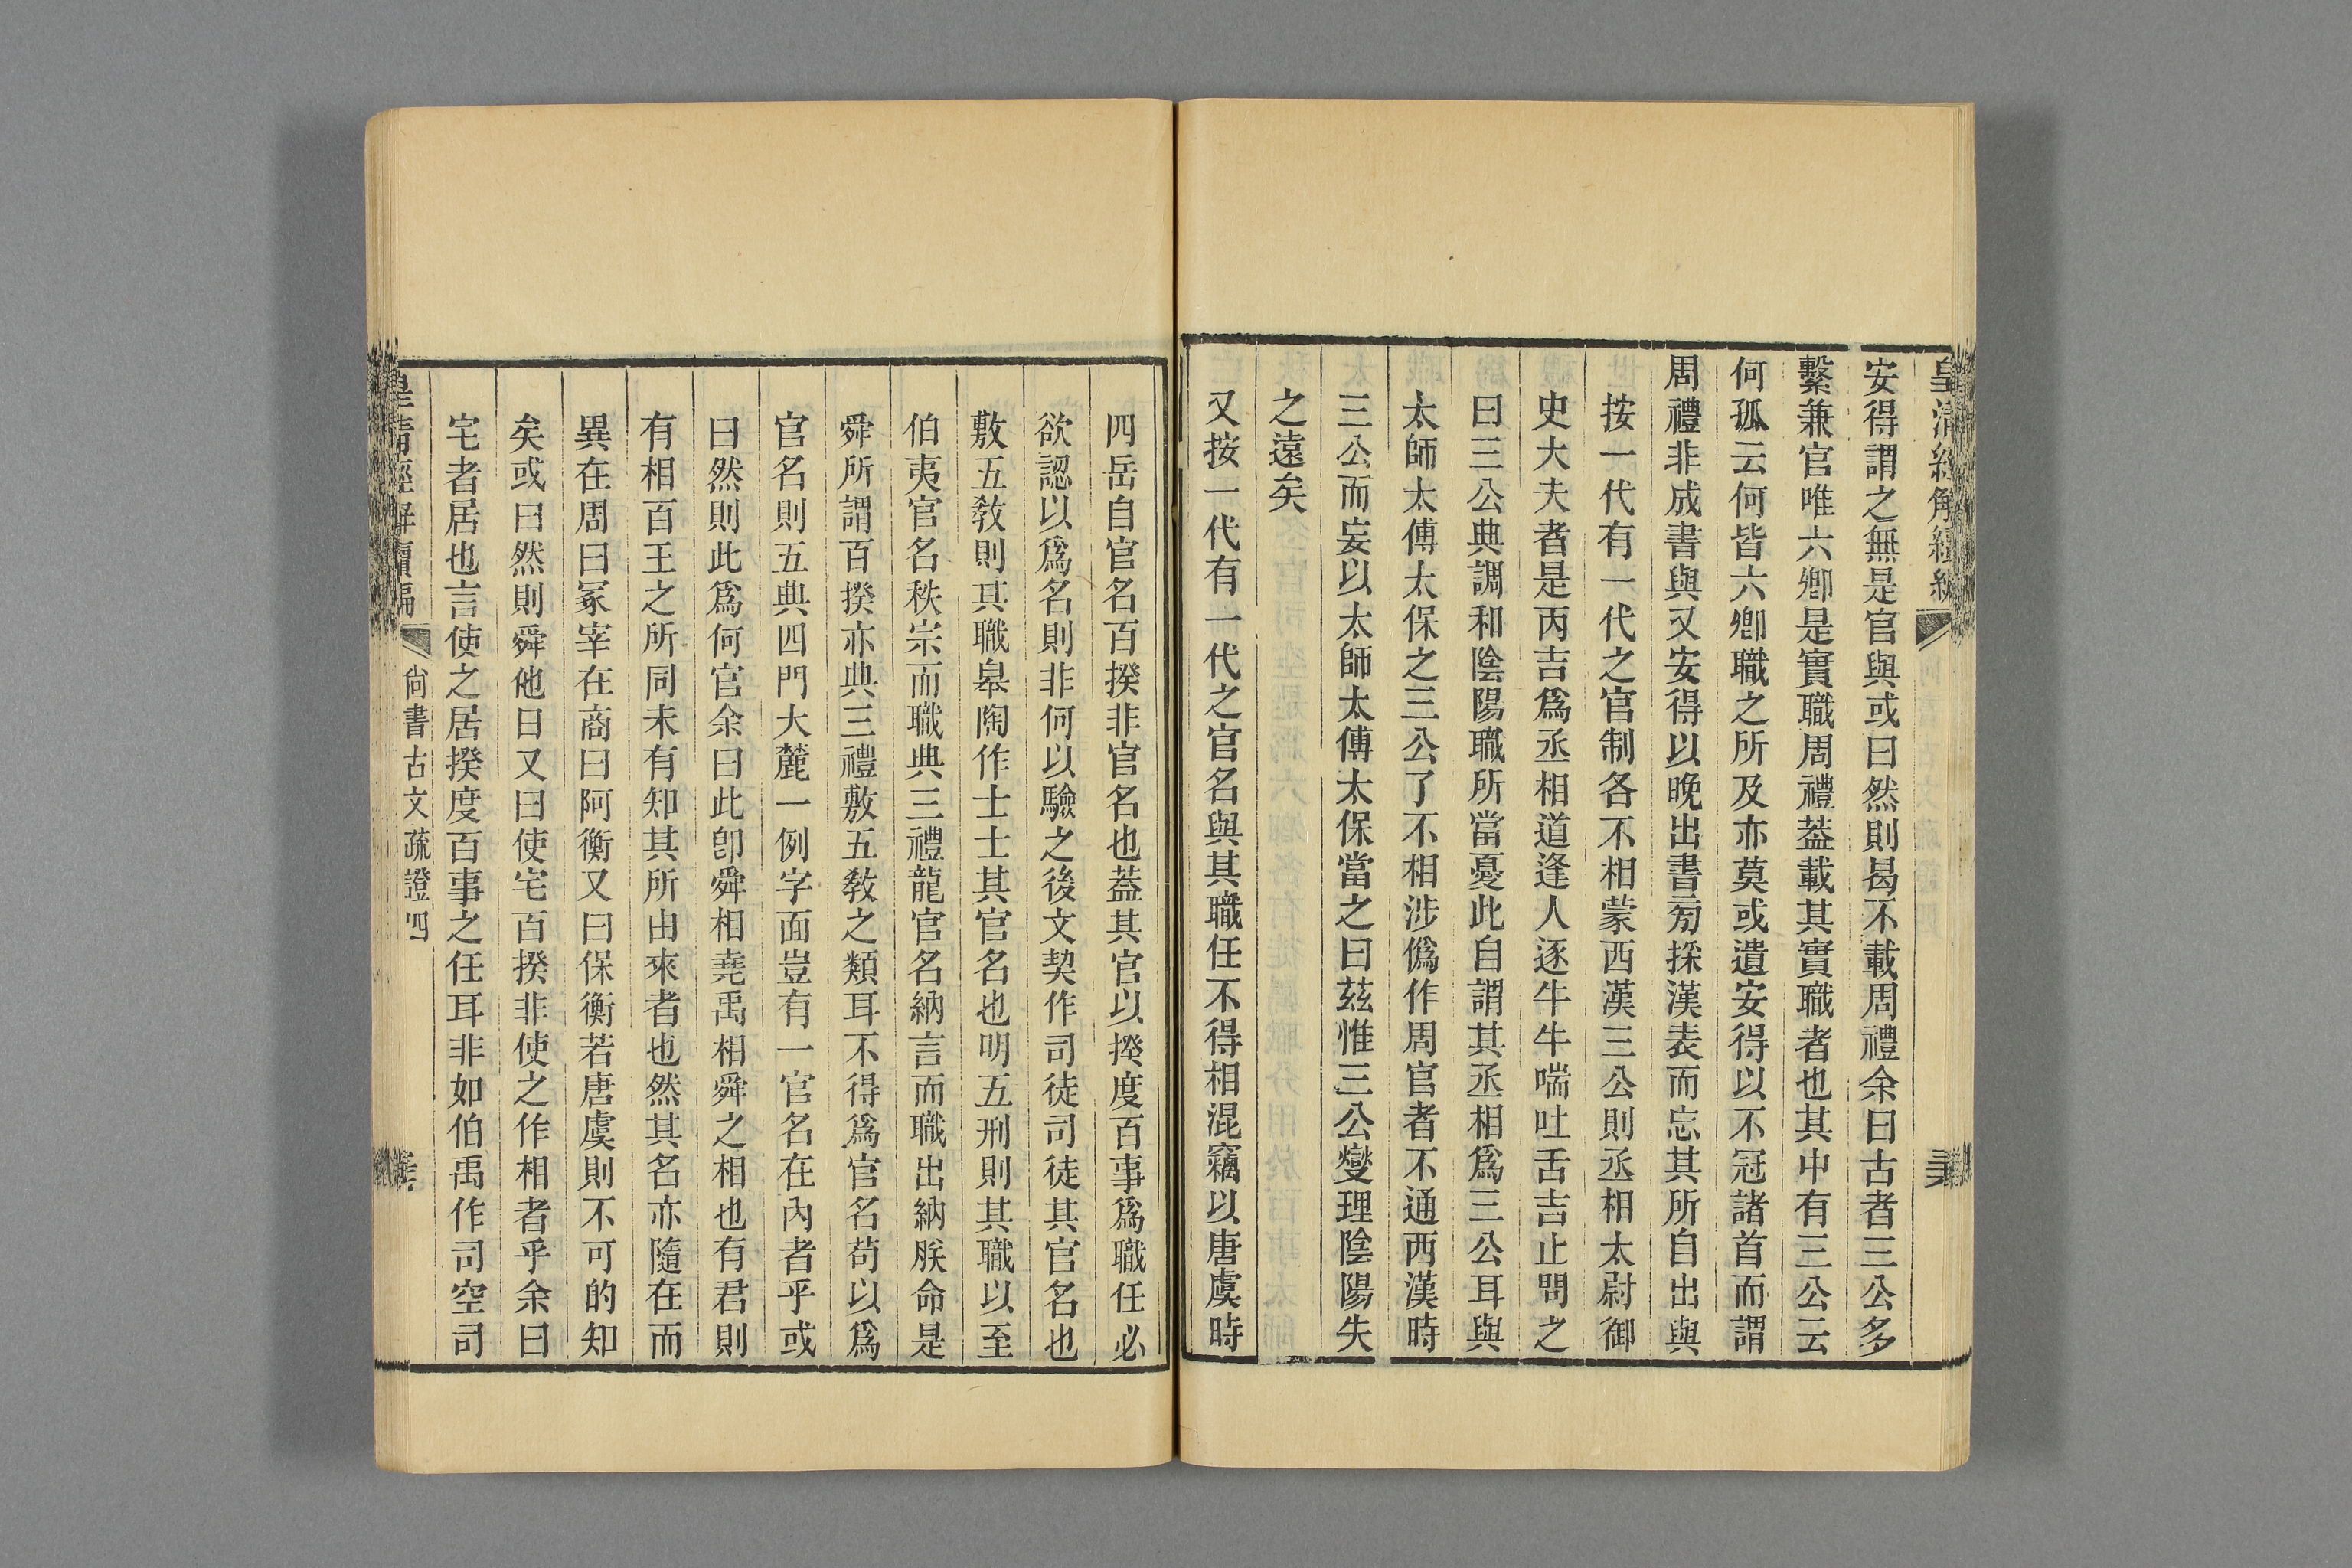 皇清經解續編
安得謂之無是官與或曰然則曷不載周禮余曰古者三公多
繫兼官唯六卿是實職周禮葢載其實職者也其中有三公云
何孤云何皆六卿職之所及亦莫或遺安得以不冠諸首而謂
周禮非成書與又安得以晚出書旁採漢表而忘其所自出與
按一代有一代之官制各不相蒙西漢三公則丞相太尉御
史大夫者是丙吉爲丞相道逢人逐牛牛喘吐舌吉止問之
曰三公典調和陰陽職所當憂此自謂其丞相爲三公耳與
太師太傅太保之三公了不相涉僞作周官者不通西漢時
三公而妄以太師太傅太保當之曰茲惟三公燮理陰陽失
之遠矣
又按一代有一代之官名與其職任不得相混竊以唐虞時
四岳自官名百揆非官名也葢其官以揆度百事爲職任必
欲認以爲名則非何以驗之後文契作司徒司徒其官名也
敷五敎則其職皋陶作士士其官名也明五刑則其職以至
伯夷官名秩宗而職典三禮龍官名納言而職出納朕命是
舜所謂百揆亦典三禮敷五敎之類耳不得爲官名苟以爲
官名則五典四門大麓一例字面豈有一官名在內者乎或
曰然則此爲何官余曰此卽舜相堯禹相舜之相也有君則
有相百王之所同未有知其所由來者也然其名亦隨在而
異在周曰冢宰在商曰阿衡又曰保衡若唐虞則不可的知
矣或曰然則舜他日又曰使宅百揆非使之作相者乎余曰
宅者居也言使之居揆度百事之任耳非如伯禹作司空司
皇清經解續編
尙書古文疏證四